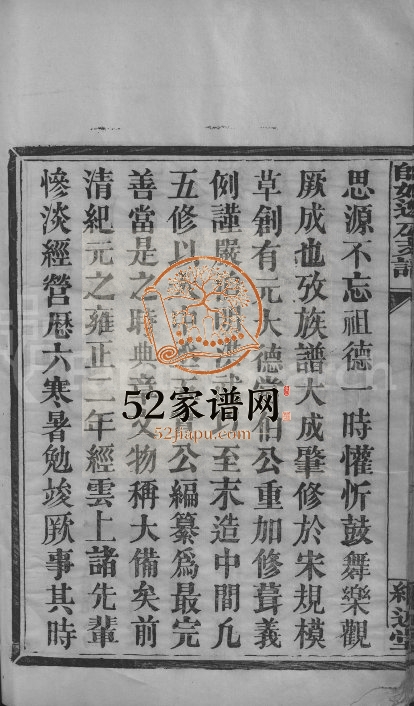 思源不忘祖德一時懽忻鼓舞樂觀
厥成也攷族譜大成肇修於宋規模
草創有元大德當伯公重加修葺義
例謹嚴明洪武以至末造中間凢
五修以中公編纂爲最完
善當是之時典章文物稱大備矣前
清紀元之雍正三年經雲上諸先輩
慘淡經營歷六寒暑勉竣厥事其時
52家谱网
52jiapu.com